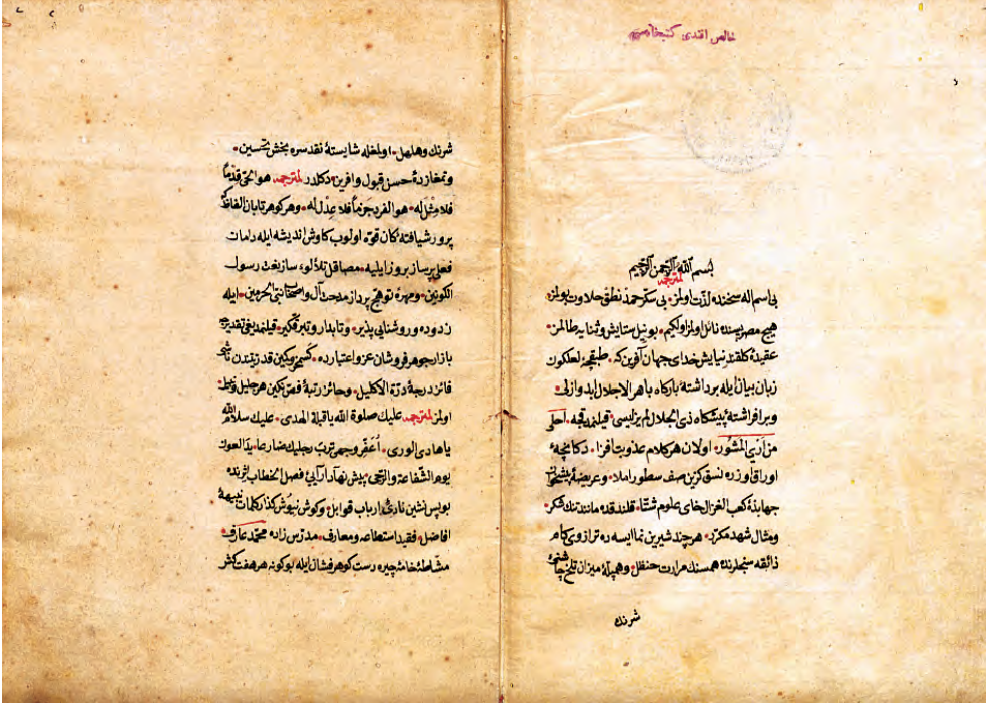 خالص افندی کتبخانه‌سی
بسم الله الرحمن الرحیم
لمترجمه
بی اسم اله سخنده لذت اولمز. بی سکر حمد نطق حلاوت بولمز
هیچ مصر پسنده نائل اولمز اول کیم. بو نیل ستایش و ثنایه طالمز.
عقیدهٔ کلقند نیایش خدای جهان آفرین که. طبقچهٔ لعلکون
زبان بیان ایله برداشتهٔ بارکاه باهر الاجلال ابد و ازلی
و برافراشتهٔ پیشکاه ذی الجلال لم یزلیسی. قیلنمدقچه. احلی
من اری المشور. اولان هر کلام عذوبت افزا. دکانچهٔ
اوراق اوزره نسق کزین صف سطور املا. و عریضهٔ
جهابذهٔ کعب الغزال خای علوم شتا. قلندقده مانند تنك شکر.
و مثال شهد مکرر. هر چند شیرین نما ایسه ده ترازوی کام
ذائقه سنجلرنده همسنك مرارت حنظل. و همپلهٔ میزان تلخ چاشنئ
شرنك
شرنك و هلهل. اولمغله شایستهٔ نقد سره بخش تحسین.
و تمغازدهٔ حسن قبول و آفرین دکلدر لمترجمه هو الحی قدما
فلا مثل له. هو الفرد جزما فلا عدل له. و هر کوهر تابان الفاظ که
پرورش یافتهٔ کان قوه اولوب کاوش اندیشه ایله دامان
فعلی پرساز بروز ایلیه. مصاقل تلألوء ساز نعت رسول
الکونین. و مهرهٔ توهج پرداز مدحت آل و اصحاب نبی الحرمین. ایله
زدوده و روشنایی پذیر. و تابدار و تبرقکیر. قیلنمدیغی تقدیرجه
بازار جوهرفروشان عز و اعتبارده. کمبهر و بکین قدر زیتندن ناشی
فائز درجهٔ درة الاکلیل. و حائز رتبهٔ فص نکین هر جلیل و نبیل.
اولمز لمترجمه علیك صلوة الله یا قبلة الهدی. علیك سلام الله
یا هادی الوری. اعفر وجهی ترب رجلیك ضارعا. یدا لعون
یوم الشفاعة والرجی پیش نهاد آرایئ فصل الخطاب اثرنده
بو پس نشین نادئ ارباب قوابل و کوش نیوش کذار کلمات نبیهٔ
افاضل. فقید استطاعه و معارف. مدرس زاده محمد عارف.
مشاطهٔ خامهٔ چیره دست کوهر فشان ایله بو کونه هر هفت کش